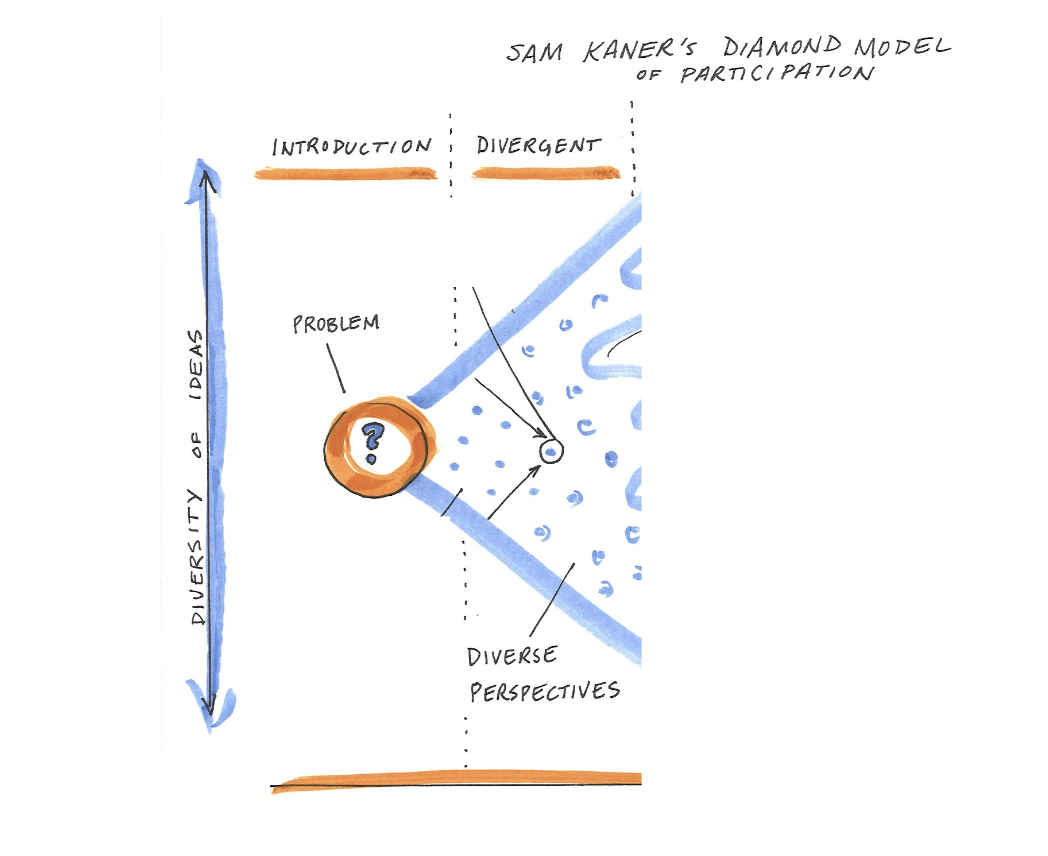 SAM KANER'S DIAMOND MODEL
OF PARTICIPATION
INTRODUCTION
DIVERGENT
PROBLEM
?
DIVERSITY OF IDEAS
DIVERSE
PERSPECTIVES